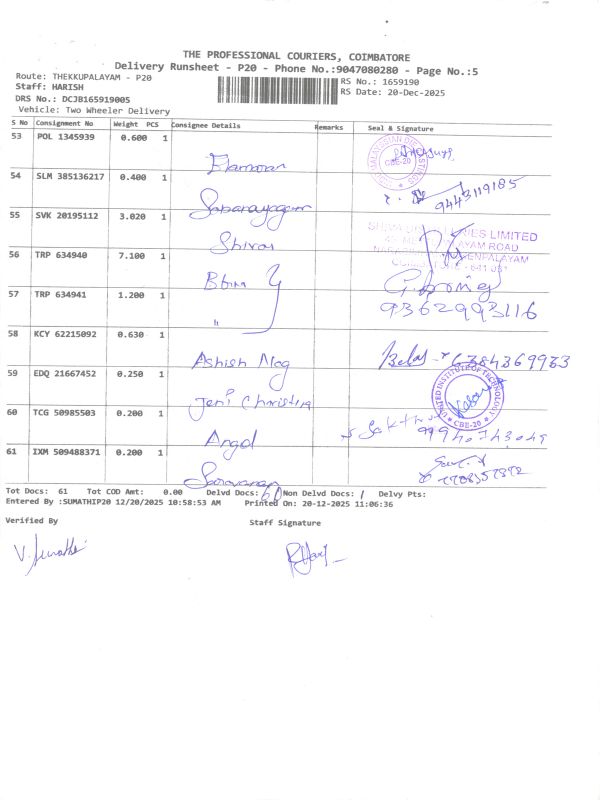 THE PROFESSIONAL COURIERS, COIMBATORE
Delivery Runsheet - P20 - Phone No.:9047080280 - Page No.:5
Route: THEKKUPALAYAM - P20
Staff: HARISH
DRS No.: DCJB165919005
Vehicle: Two Wheeler Delivery
RS No.: 1659190
RS Date: 20-Dec-2025
S No Consignment No Weight PCS Consignee Details Remarks Seal & Signature
53 POL 1345939 0.600 1 Elamaran
CBE-20
54 SLM 385136217 0.400 1 Sabarayagam 9443119185
55 SVK 20195112 3.020 1 Shivas
56 TRP 634940 7.100 1 Bbm
57 TRP 634941 1.200 1 〃 9362993116
58 KCY 62215092 0.630 1 Ashish Mog 6384369933
59 EDQ 21667452 0.250 1 Jeni Christina
UNITED INSTITUTE OF TECHNOLOGY
CBE-20
60 TCG 50985503 0.200 1 Angel
61 IXM 509488371 0.200 1 Saravanan
Tot Docs: 61 Tot COD Amt: 0.00 Delvd Docs: 60 Non Delvd Docs: 1 Delvy Pts:
Entered By :SUMATHIP20 12/20/2025 10:58:53 AM Printed On: 20-12-2025 11:06:36
Verified By Staff Signature
V. Sumathi